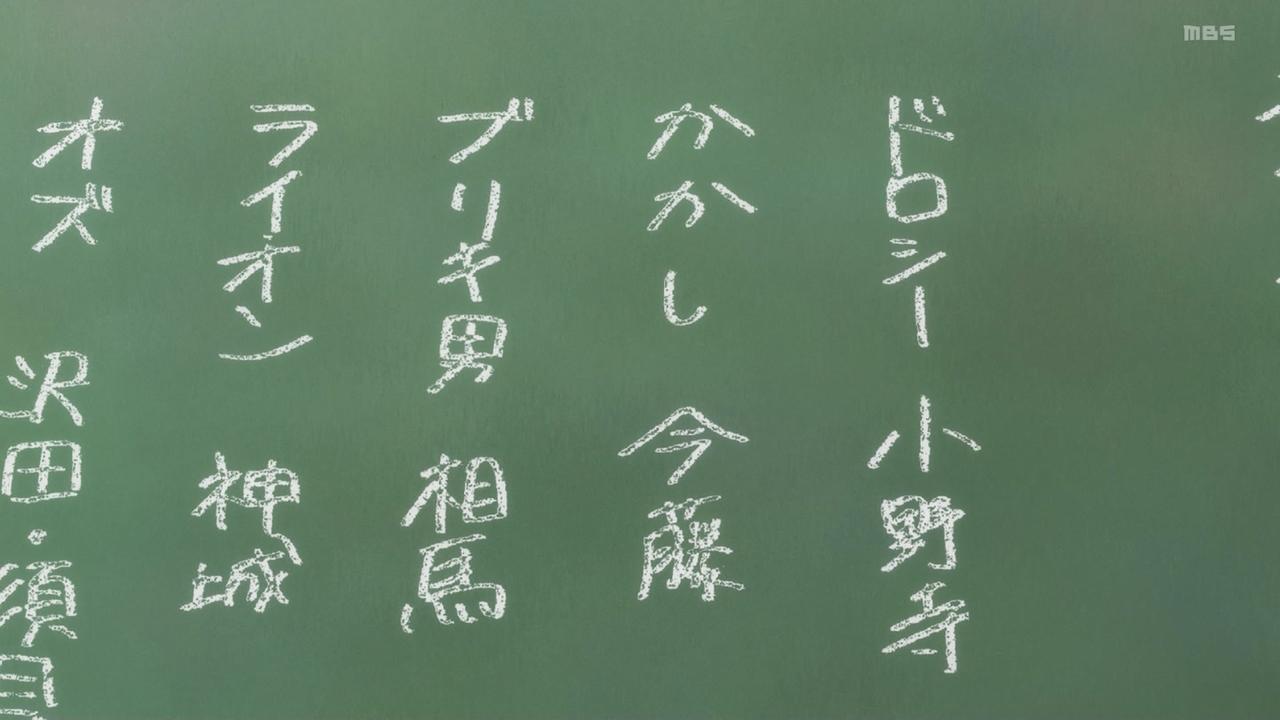 MBS
ドロシー 小野寺
かかし 今藤
ブリキ男 相馬
ライオン 神城
オズ 沢田・須貝